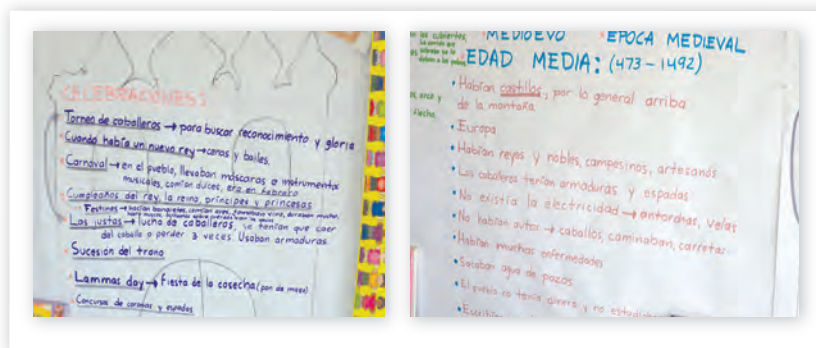 CELEBRACIONES:
Torneo de caballeros → para buscar reconocimiento y gloria
Cuando había un nuevo rey → cenas y bailes.
Carnaval → en el pueblo, llevaban máscaras e instrumentos
musicales, comían dulces, era en febrero
Cumpleaños del rey, la reina, príncipes y princesas
Festines → hacían banquetes, comían aves, tomaban vino, duraban mucho,
Las justas → lucha de caballeros, se tenían que caer
del caballo o perder 3 veces. Usaban armaduras
Sucesión del trono
Lammas day → Fiesta de la cosecha (pan de masa)
Concurso de coronas y espadas
MEDIOEVO
EPOCA MEDIEVAL
EDAD MEDIA: (473-1492)
• Habían castillos, por lo general arriba
de la montaña
• Europa
• Habían reyes y nobles, campesinos, artesanos
• Los caballeros tenían armaduras y espadas
• No existía la electricidad → antorchas, velas
• No habían autos → caballos, caminaban, carretas
• Habían muchas enfermedades
• Sacaban agua de pozos
• El pueblo no tenía dinero y no